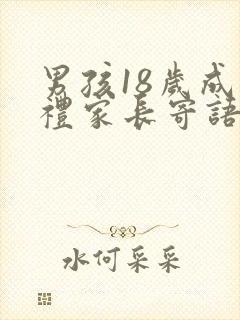 男孩18歲成
禮家長寄語
水何采采